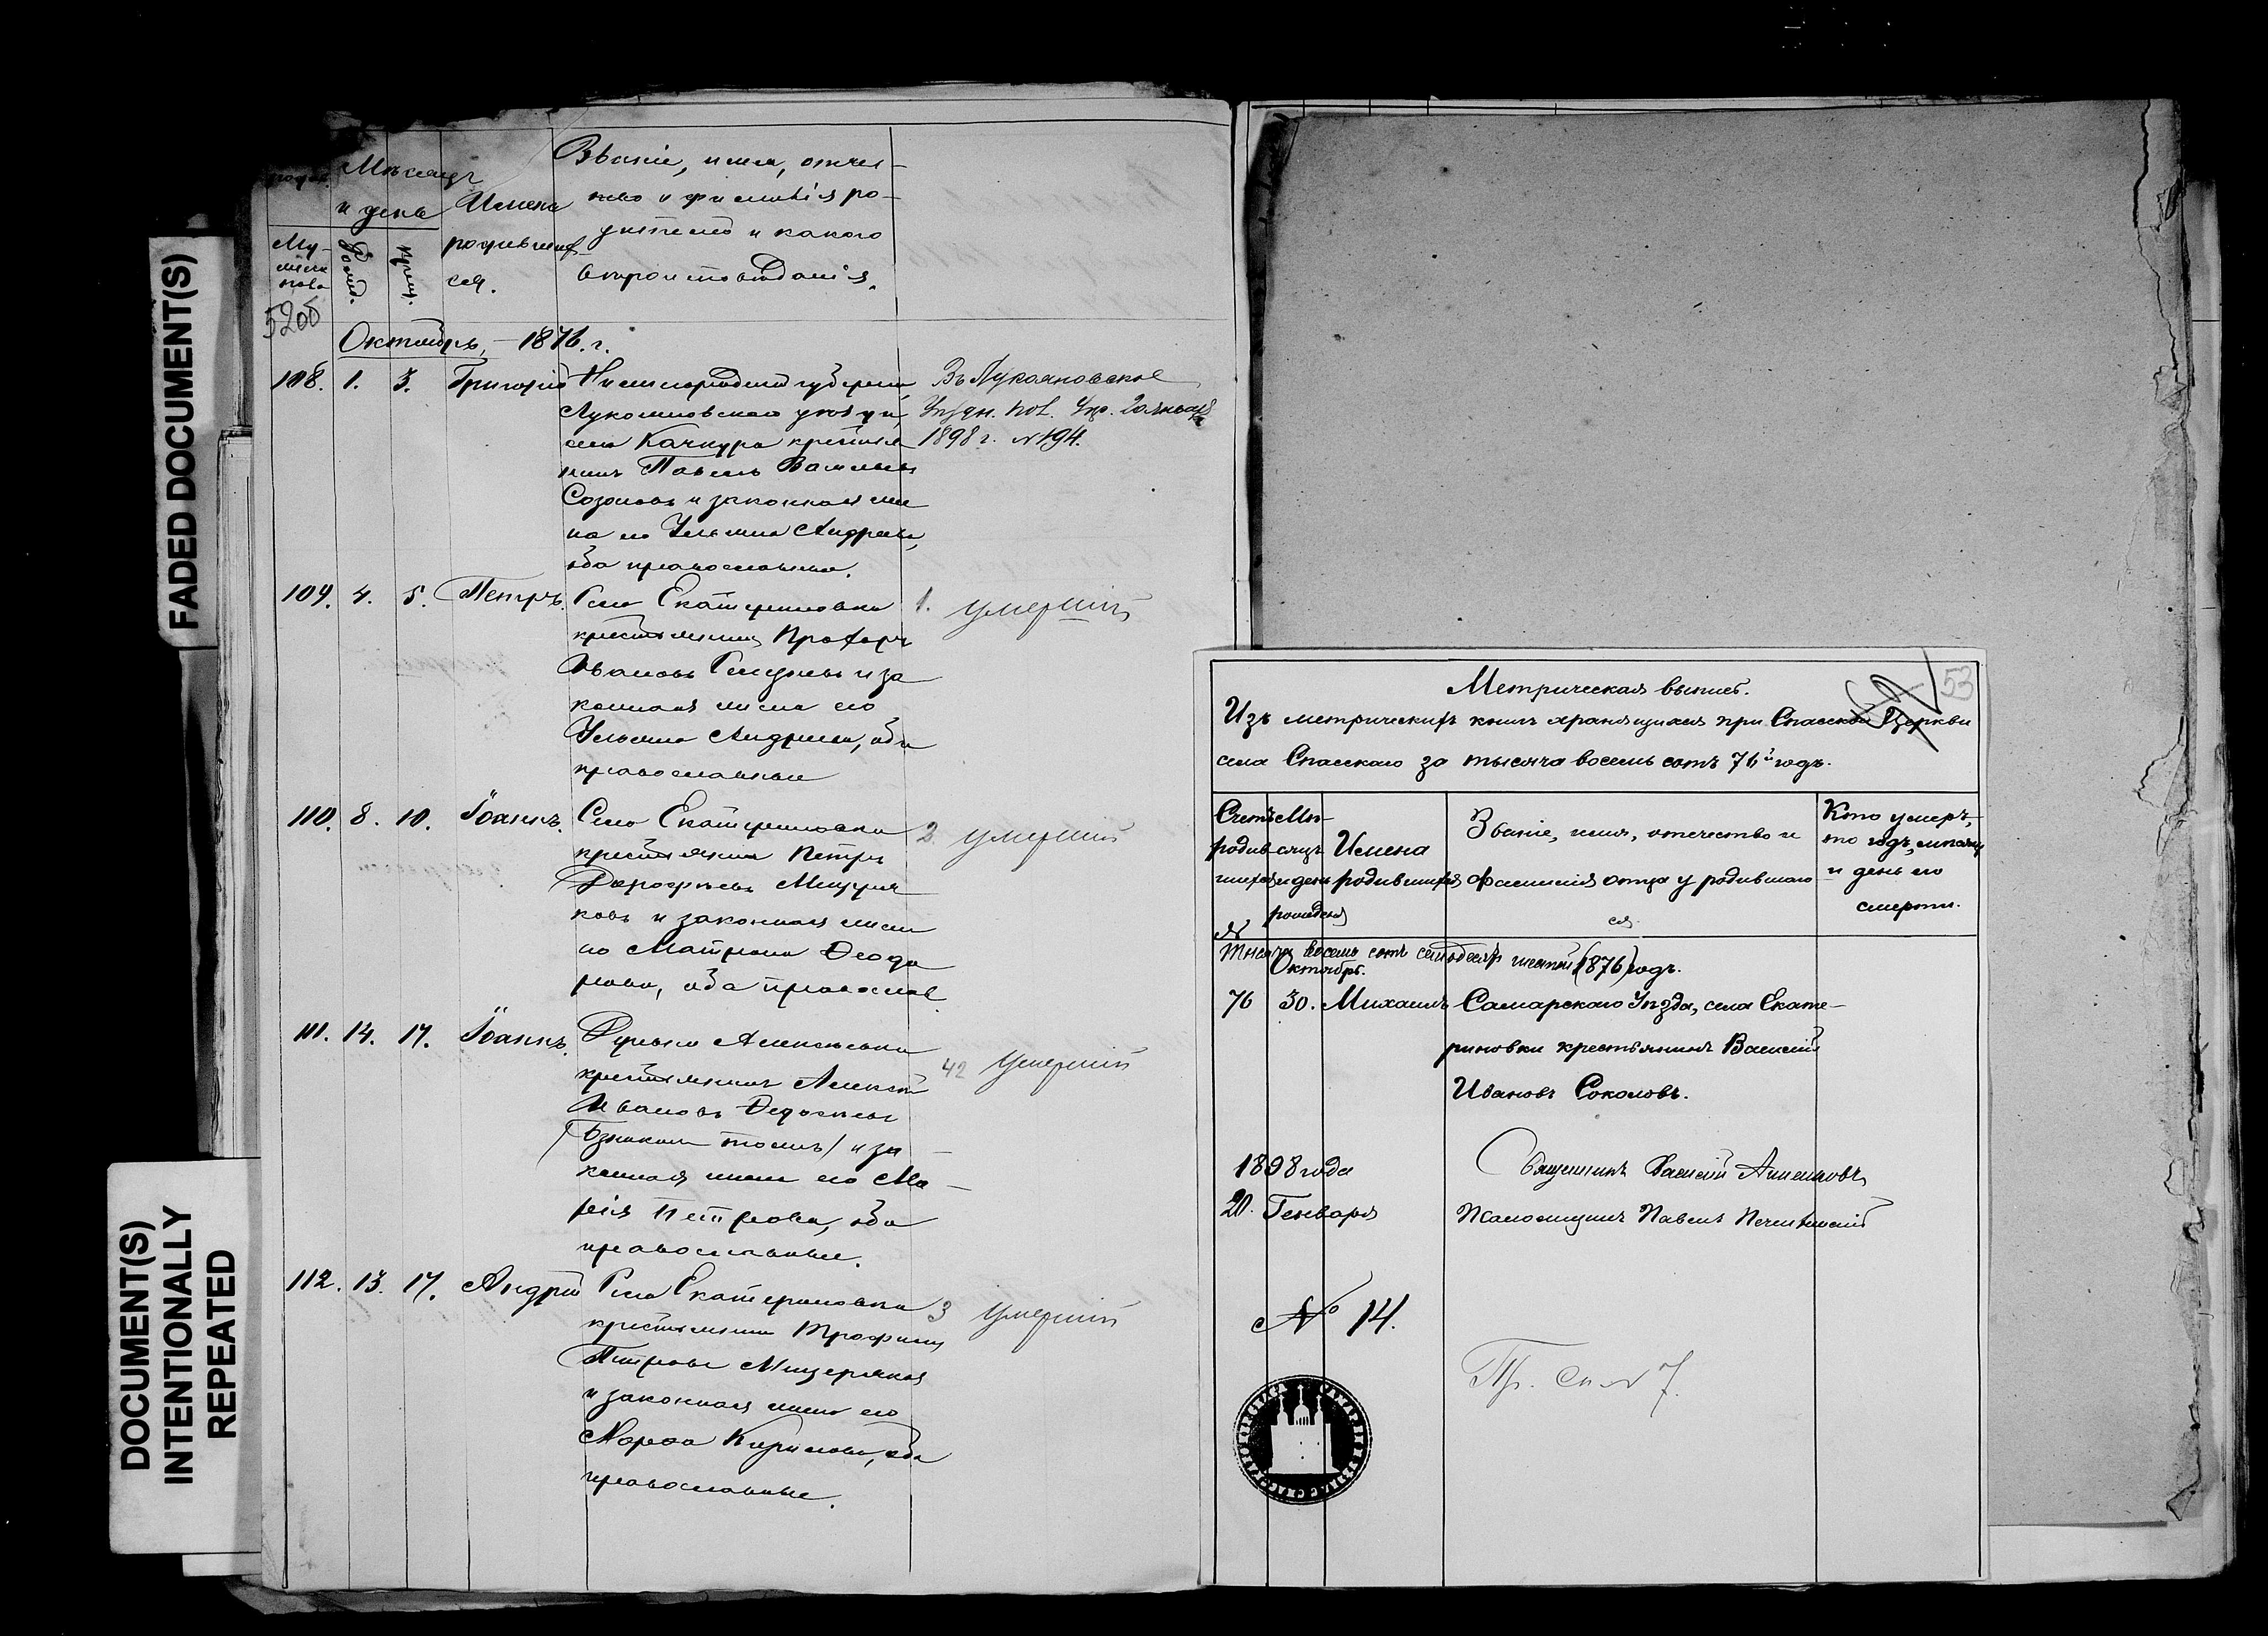 FADED DOCUMENT(S)
DOCUMENT(S)
INTENTIONALLY
REPEATED
Мѣсяцъ
и день
Му-
жска
пола
Рожд.
Крещ.
Имена
родивших
ся.
Званіе, имя, отчес-
тво и фамилія ро-
дителей и какого
вѣроисповѣданія.
Октябрь, - 1876. г.
108. 1. 3. Григорій Нижегородской губерніи
Лукояновскаго уѣзда,
села Качкура крестья
нинъ Павелъ Васильевъ
Созоновъ и законная же
на его Ульяна Андреева,
оба православные.
Въ Лукояновское
Уѣздн. Пол. Упр. 20 января
1898 г. №194.
109. 4. 5. Петръ. Села Екатериновки
крестьянинъ Прохоръ
Ивановъ и за
конная жена его
Ульяна Андреева, оба
православные
1. умерший
110. 8. 10. Іоаннъ. Села Екатериновки
крестьянинъ Петръ
Дорофѣевъ Мещеря
ковъ и законная жена
его Матрона Ѳеодо
рова, оба православ.
2. умерший
111. 14. 17. Іоаннъ. Алексѣевки
крестьянинъ Алексѣй
Ивановъ
и за-
конная жена его Ма-
рія Петрова, оба
православные.
42 умерший
112. 13. 17. Андрей Села Екатериновки
крестьянинъ Трофимъ
Петровъ Мещеряковъ
и законная жена его
Марѳа Кирилова, оба
православные.
3 умерший
53
Метрическая выпись.
Изъ метрическихъ книгъ хранящихся при Спасской Церкви
села Спасскаго за тысяча восемь сотъ 76й годъ.
Счетъ
родив
шихся
№
Мѣ-
сяцъ
и день
рожденія
Имена
родившихся
Званіе, имя, отечество и
фамилія отца у родившаго
ся.
Кто умеръ,
то годъ, мѣсяцъ
и день его
смерти.
Тысяча восемь сотъ семьдесятъ шестой (1876) годъ.
Октябрь.
76 30. Михаилъ Самарскаго Уѣзда, села Екате-
риновки крестьянинъ Василій
Ивановъ Соколовъ.
1898 года
20. Генваря
Священникъ Василій
Псаломщикъ Павелъ
№ 14.
№ 7.